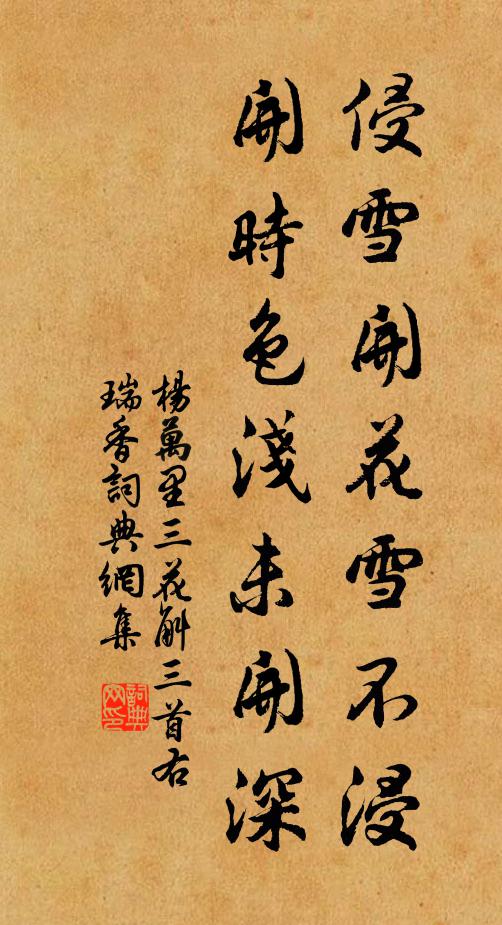 侵雪開花雪不浸
開時色淺未開深
楊萬里三花斛三首右
瑞香詞典網集
詞典
网印